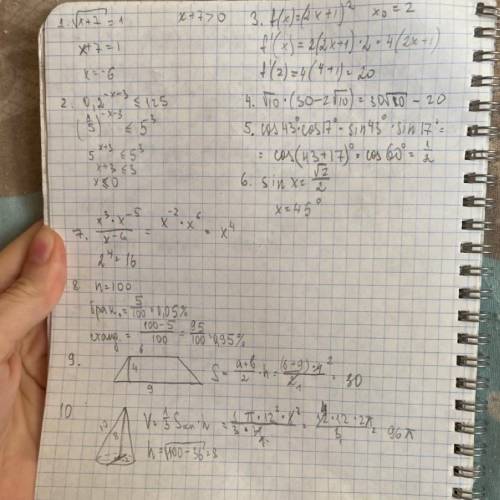 1. √(x+7) = 1   x+7>0
x+7=1
x=-6
2. 0,2^(-x-3) ≤ 125
(1/5)^(-x-3) ≤ 5³
5^(x+3) ≤ 5³
x+3 ≤ 3
x ≤ 0
3. f(x)=(2x+1)²   x₀=2
f'(x)=2(2x+1)·2=4(2x+1)
f'(2)=4(4+1)=20
4. √10·(30-2√10)=30√10-20
5. cos43°·cos17°-sin43°·sin17°=
=cos(43+17)°=cos60°=1/2
6. sin x=√2/2
x=45°
7. x³·x⁻⁵/x⁻⁴ = x⁻²·x⁶ = x⁴
2⁴=16
8. n=100
брак.=5/100=0,05%
станд.=100-5/100=95/100=0,95%
9. 6 4 9 S=(a+b)/2·h=(6+9)·4²/2₁=30
10. 10 8 V=1/3 Sосн·h
h=√(100-36)=8
=96π